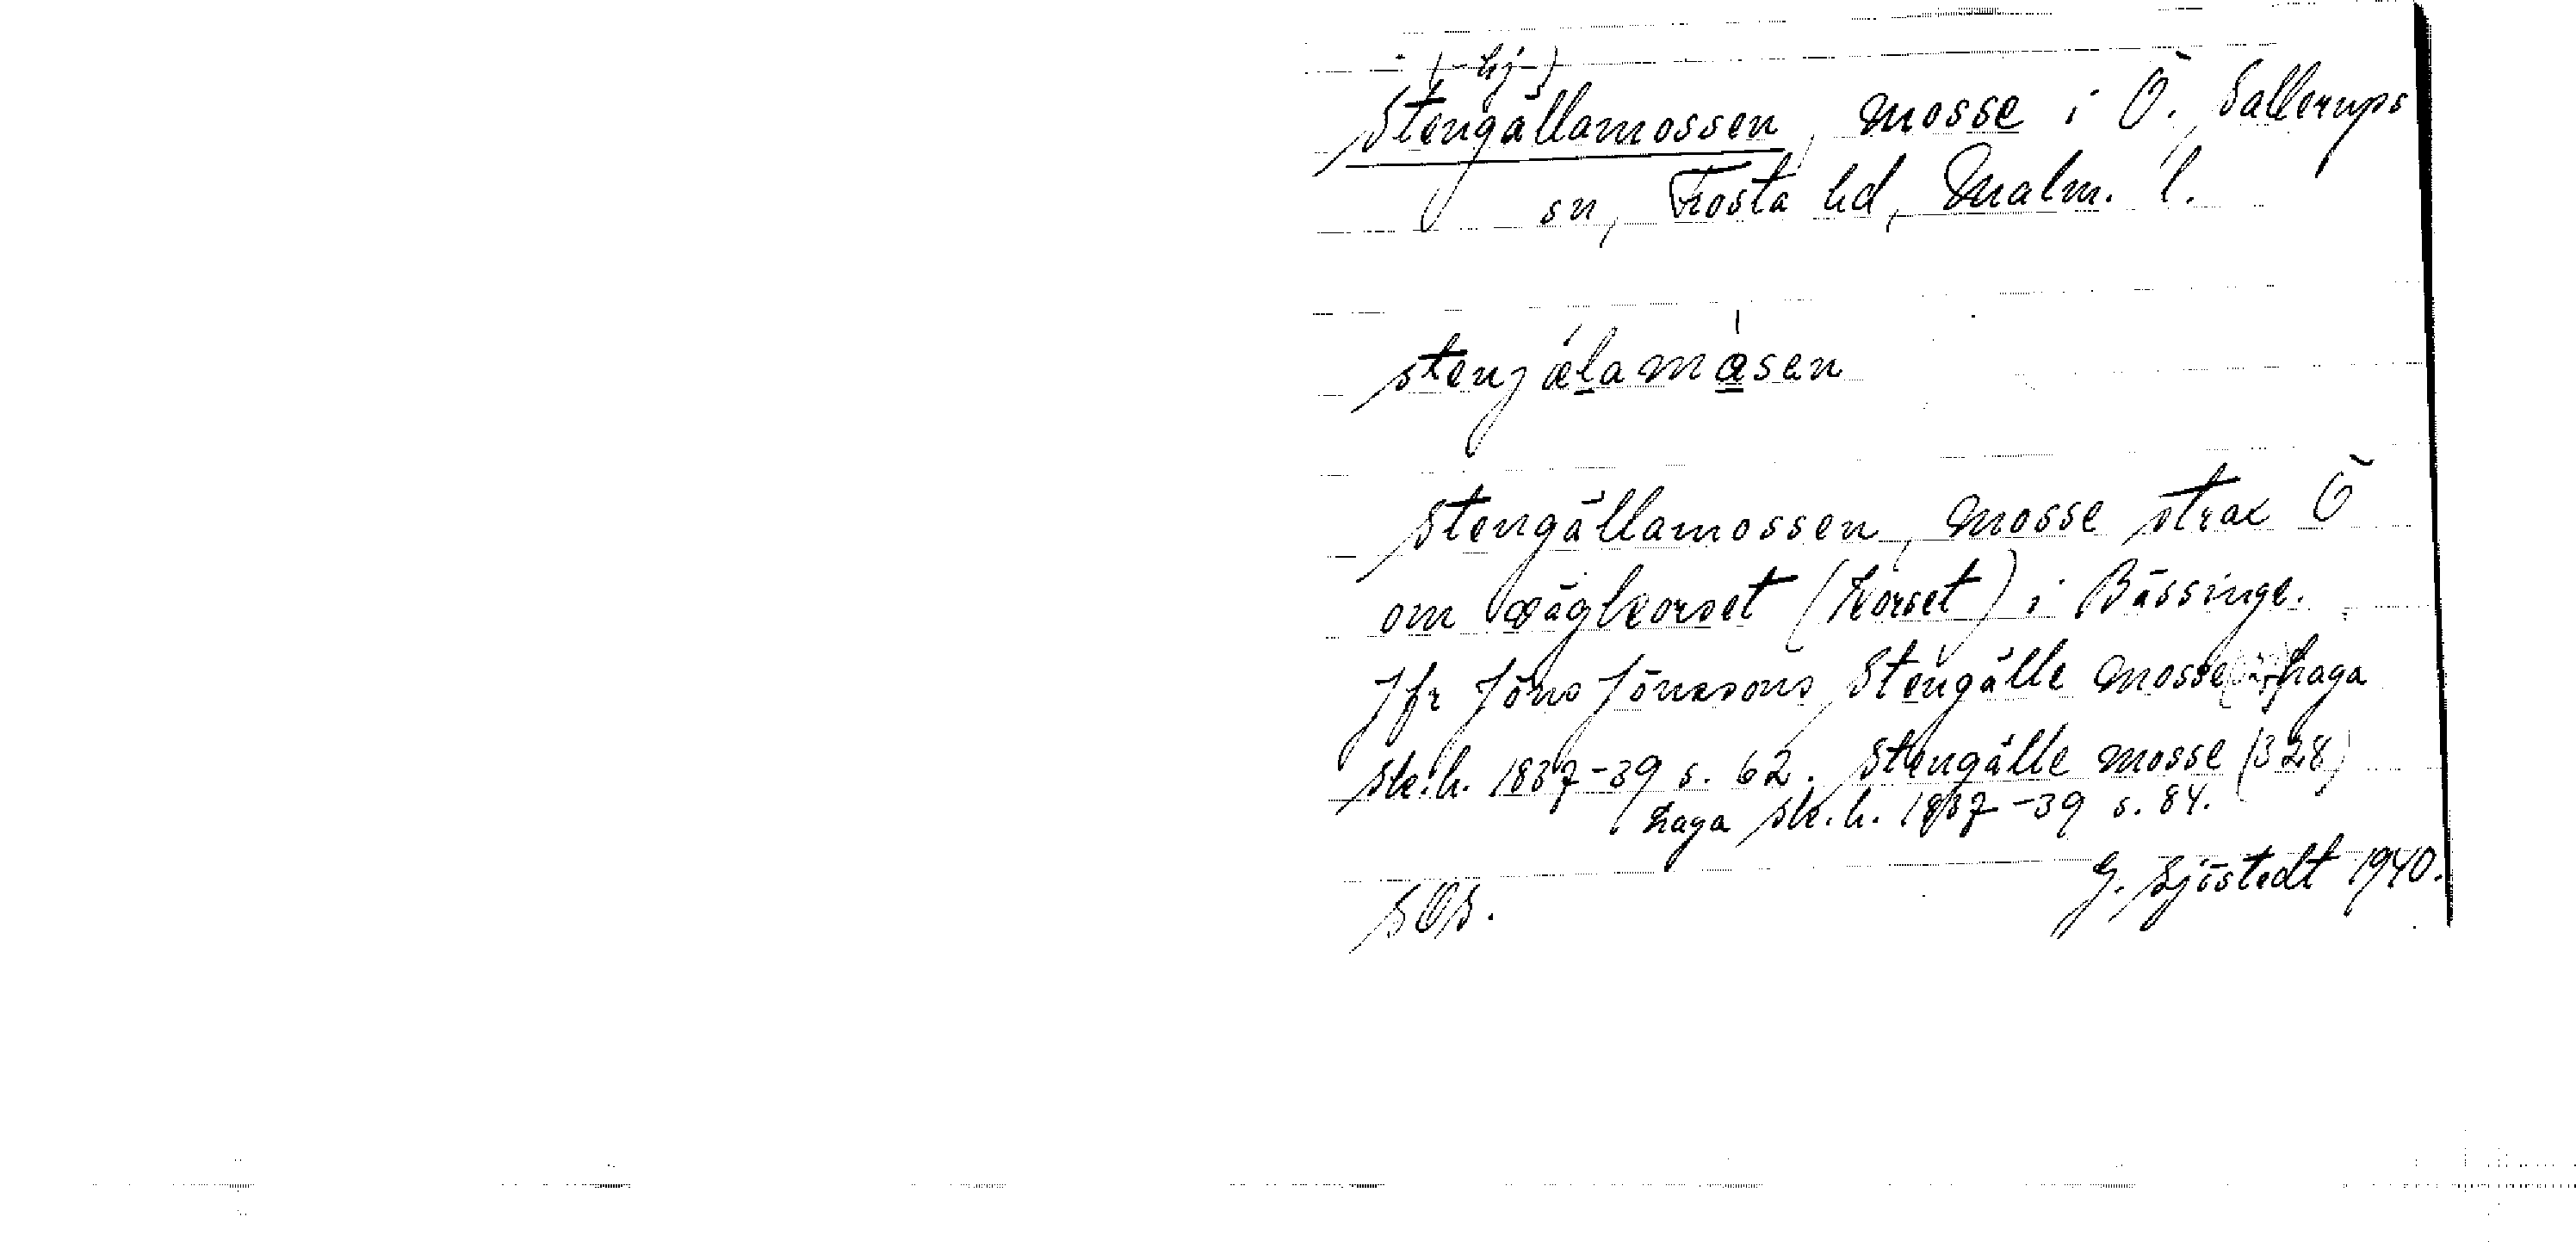 (-hj-)
Stengällamossen, mosse i Ö. Sallerups
sn, Frosta hd, Malm. l.
stenjælamåsen
Stengällamossen, mosse strax Ö
om vägkorset (Korset) i Bässinge.
Jfr Jöns Jönssons Stengälle mosse Laga
sk.h. 1837-39 s. 62. Stengälle mosse (328)
Laga sk.h. 1837-39 s. 84.
G. Sjöstedt 1940.
SOS.